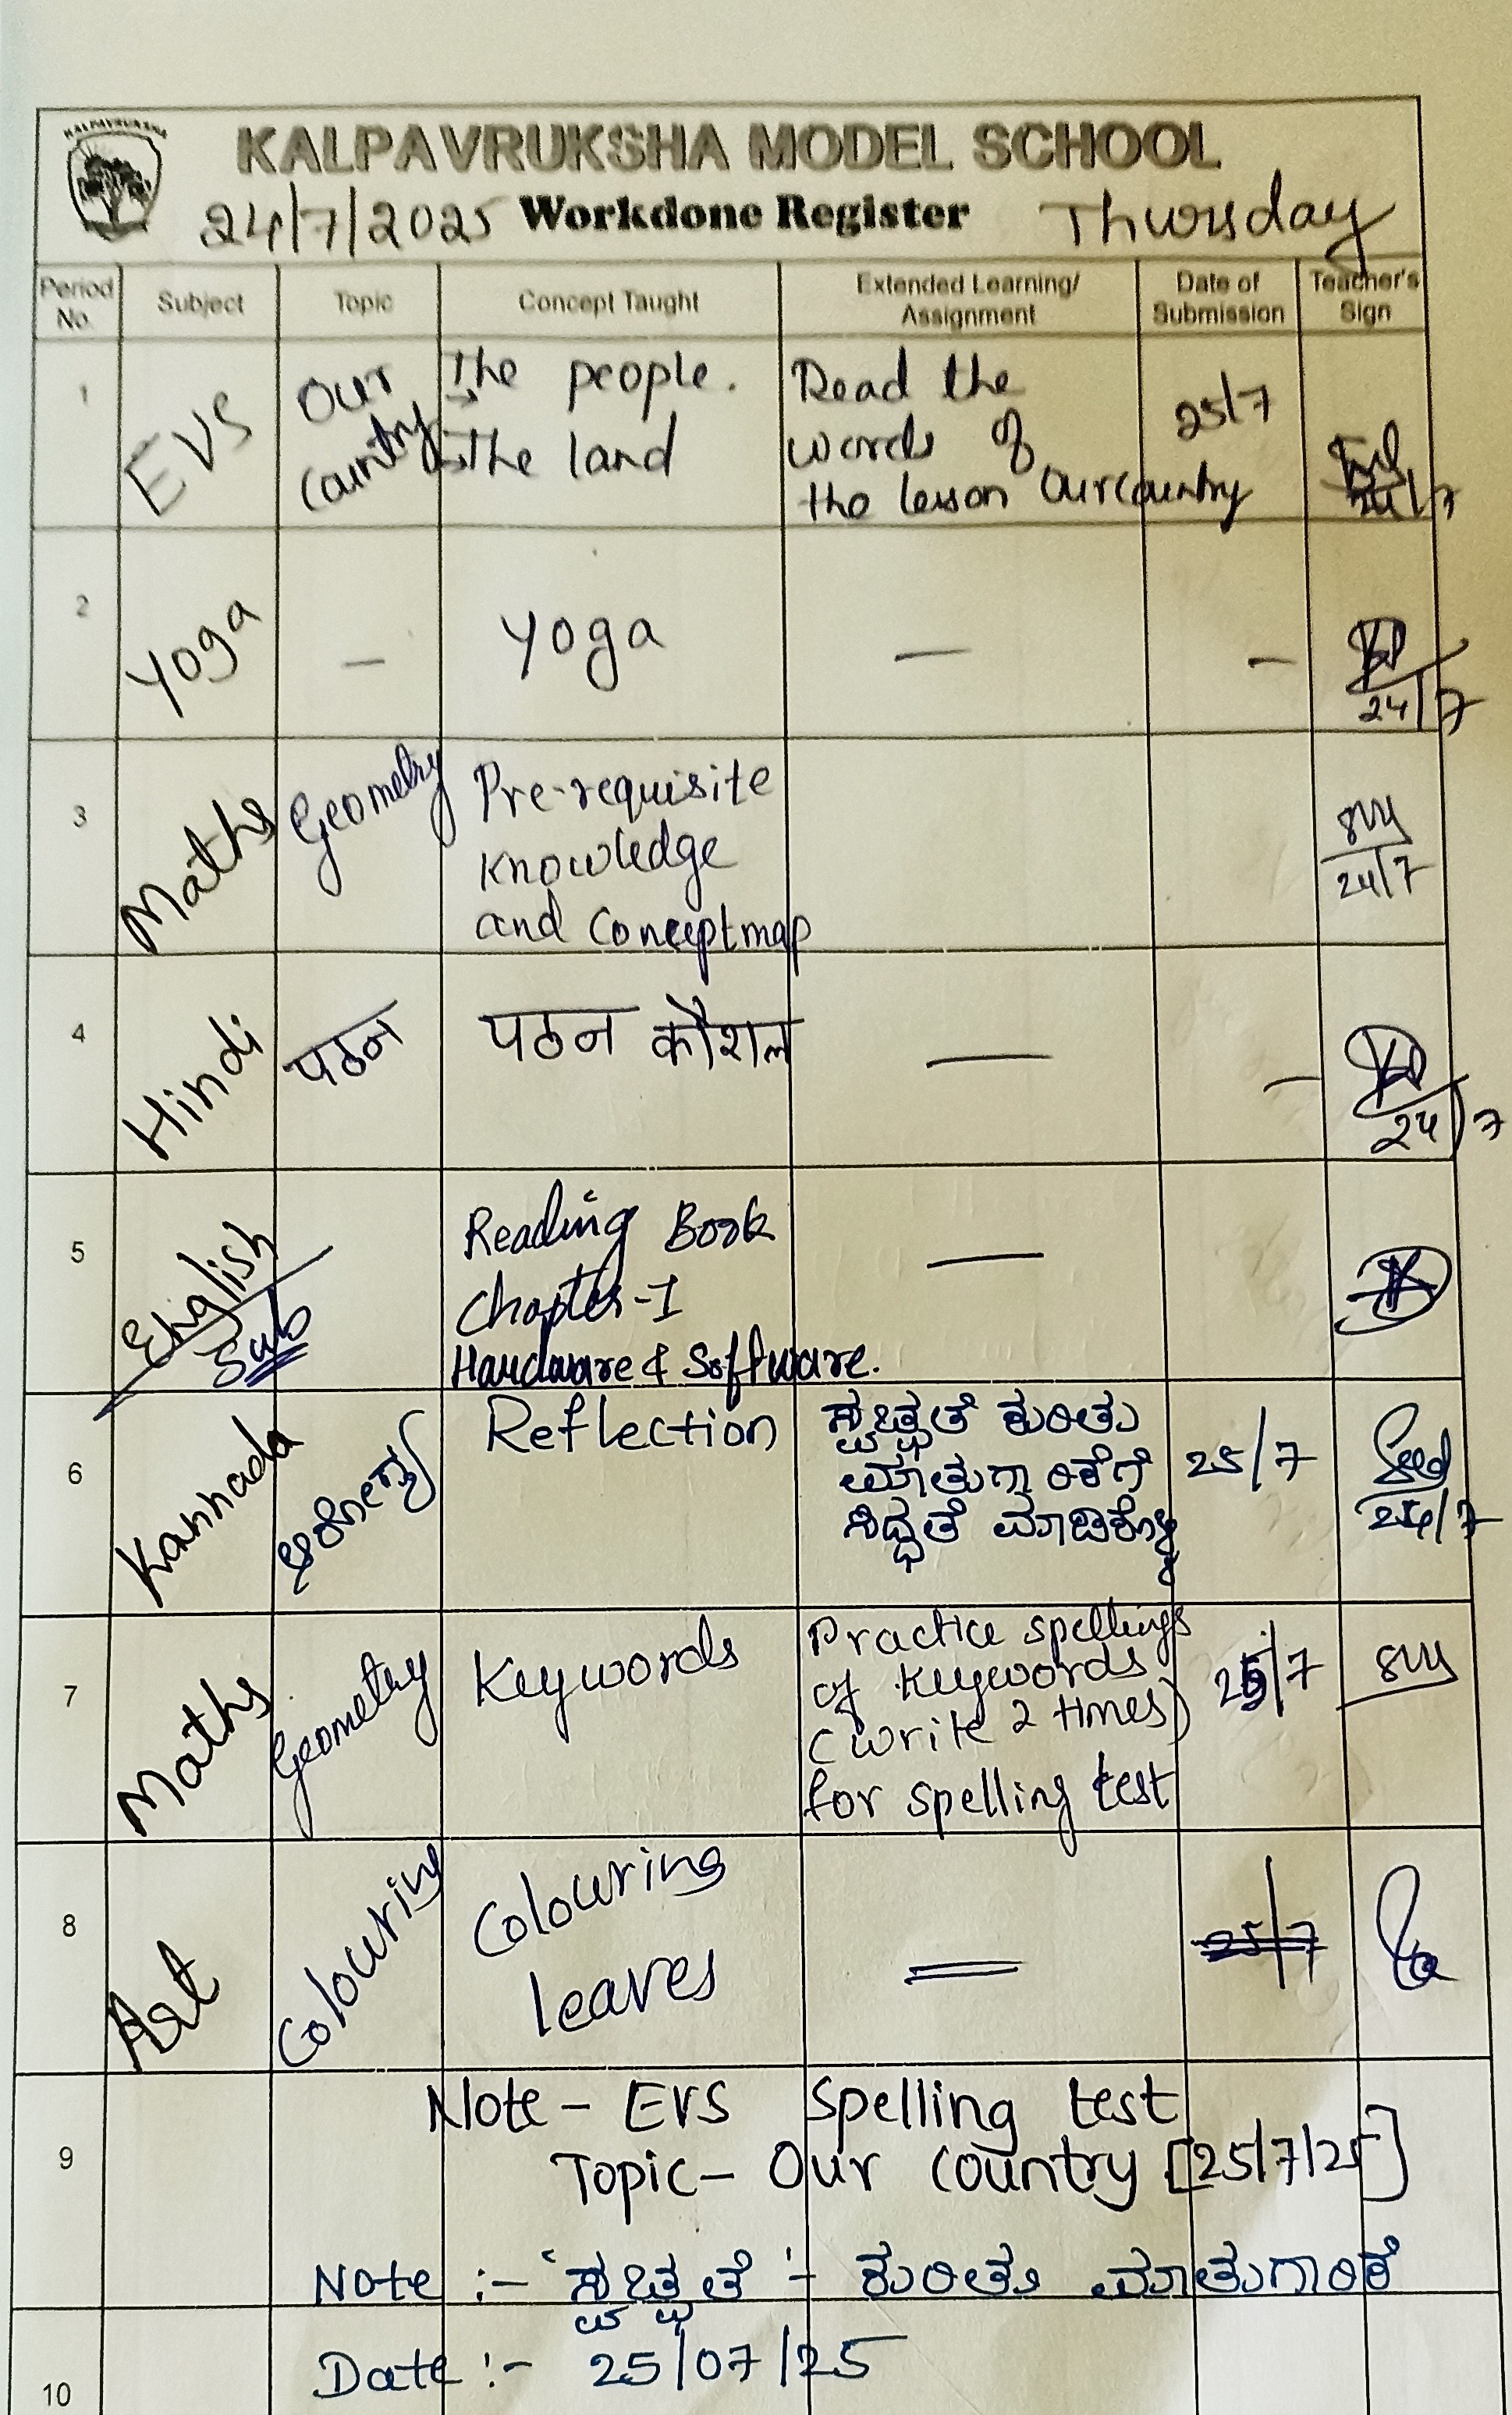 KALPAVRUKSHA
KALPAVRUKSHA MODEL SCHOOL
24/7/2025 Workdone Register Thursday
Period No. Subject Topic Concept Taught Extended Learning/ Assignment Date of Submission Teacher's Sign
1 EVS Our country → The people. Read the 25/7
→ The land words of
the lesson Our country
24/7
2 Yoga – Yoga — –
24/7
3 Maths Geometry Pre-requisite
Knowledge
and Conceptmap
24/7
4 Hindi पठन पठन कौशल — –
24/7
5 English Sub Reading Book —
Chapter-I
Hardware & Software.
6 Kannada ಆರೋಗ್ಯ Reflection ಸ್ವಚ್ಛತೆ ಕುರಿತು 25/7
ಮಾತುಗಾರಿಕೆಗೆ
ಸಿದ್ಧತೆ ಮಾಡಿಕೊಳ್ಳಿ
24/7
7 Maths Geometry Keywords Practice spellings 25/7
of keywords
(write 2 times)
for spelling test
8 Art Colouring Colouring 25/7
leaves
9 Note – EVS Spelling test
Topic – Our country [25/7/25]
Note :- ' ಸ್ವಚ್ಛತೆ ' - ಕುರಿತು ಮಾತುಗಾರಿಕೆ
10 Date :- 25/07/25